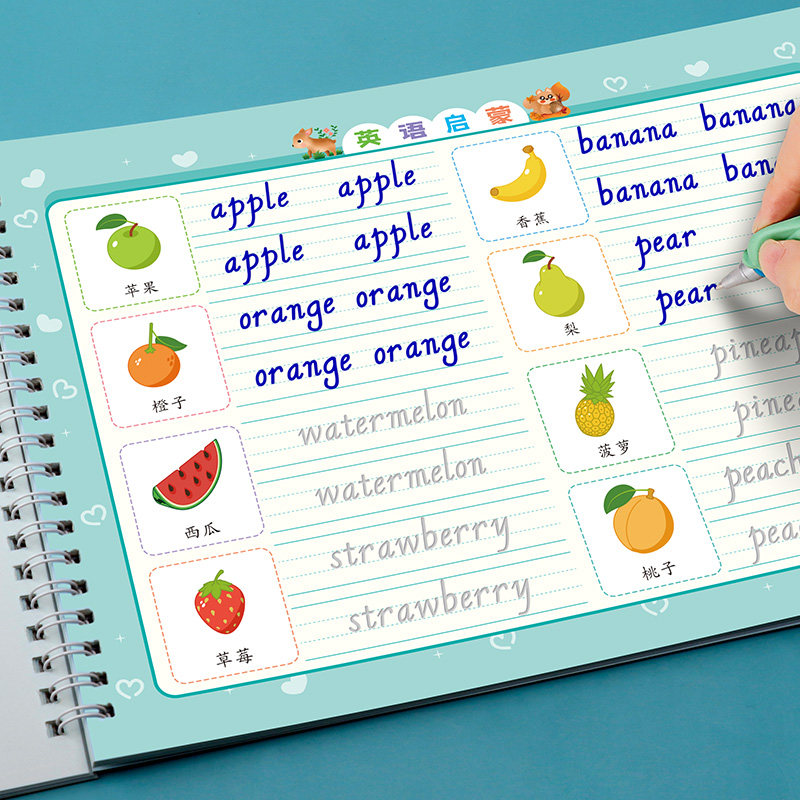 英语启蒙
苹果
apple apple
apple apple
橙子
orange orange
orange orange
西瓜
watermelon
watermelon
草莓
strawberry
strawberry
香蕉
banana banana
banana
梨
pear
pear
菠萝
桃子
peach